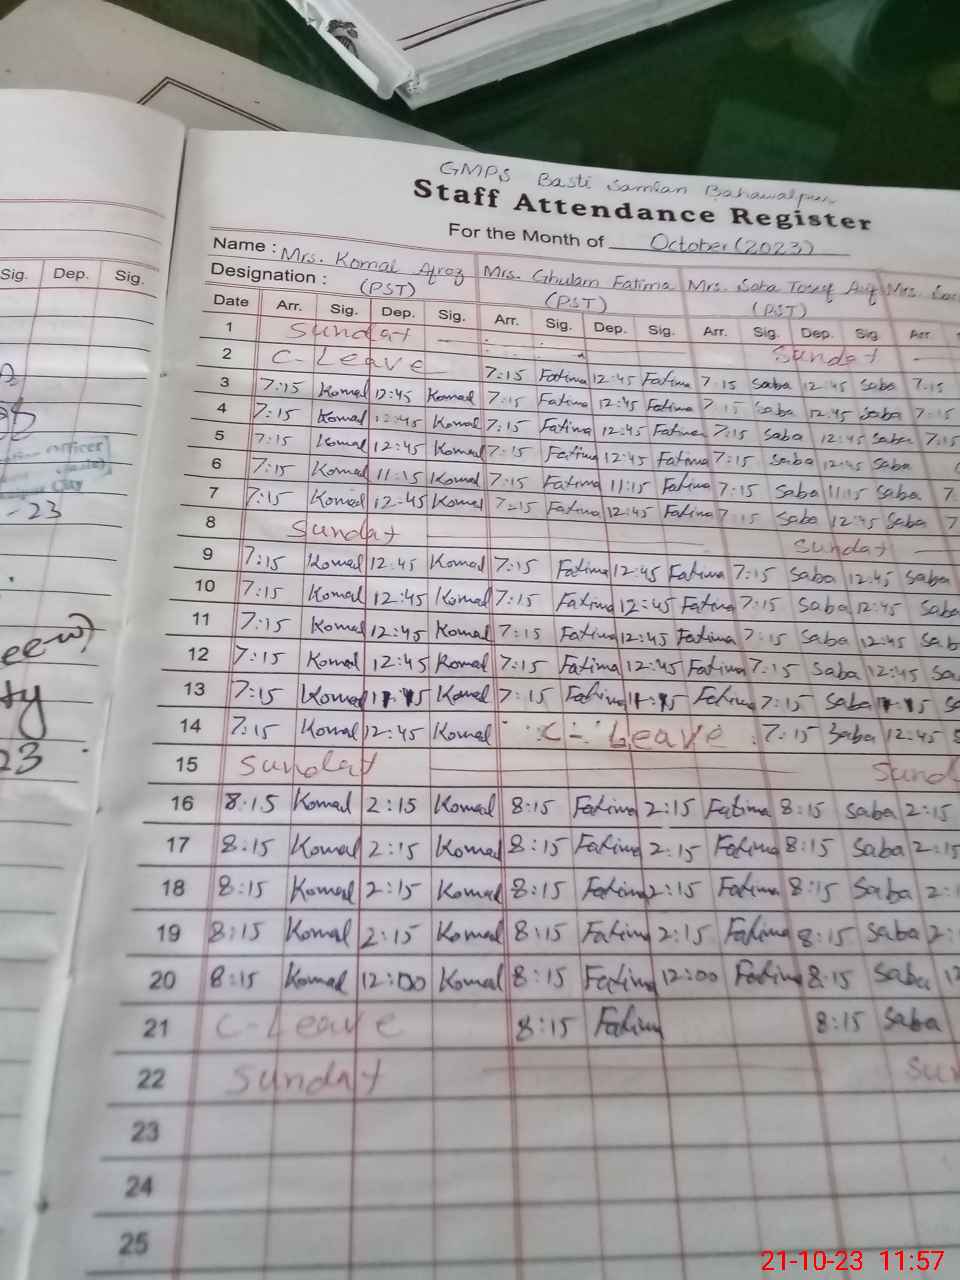 GMPS Basti Bahawalpur
Staff Attendance Register
For the Month of October (2023)
Name : Mrs. Komal Mrs. Ghulam Fatima Mrs. Saba
Designation : (PST) (PST) (PST)
Sig. Dep. Sig.
Date Arr. Sig. Dep. Sig. Arr. Sig. Dep. Sig. Arr. Sig. Dep. Sig. Arr.
1 Sunday Sunday
2 C-Leave 7:15 Fatima 12:45 Fatima 7:15 Saba 12:45 Saba 7:15
3 7:15 Komal 12:45 Komal 7:15 Fatima 12:45 Fatima 7:15 Saba 12:45 Saba 7:15
4 7:15 Komal 12:45 Komal 7:15 Fatima 12:45 Fatima 7:15 Saba 12:45 Saba 7:15
5 7:15 Komal 12:45 Komal 7:15 Fatima 12:45 Fatima 7:15 Saba 12:45 Saba
6 7:15 Komal 11:15 Komal 7:15 Fatima 11:15 Fatima 7:15 Saba 11:15 Saba 7
7 7:15 Komal 12:45 Komal 7:15 Fatima 12:45 Fatima 7:15 Saba 12:45 Saba 7
8 Sunday Sunday
9 7:15 Komal 12:45 Komal 7:15 Fatima 12:45 Fatima 7:15 Saba 12:45 Saba
10 7:15 Komal 12:45 Komal 7:15 Fatima 12:45 Fatima 7:15 Saba 12:45 Saba
11 7:15 Komal 12:45 Komal 7:15 Fatima 12:45 Fatima 7:15 Saba 12:45 Sab
12 7:15 Komal 12:45 Komal 7:15 Fatima 12:45 Fatima 7:15 Saba 12:45 Sa
13 7:15 Komal 11:15 Komal 7:15 Fatima 11:15 Fatima 7:15 Saba 11:15 Sa
14 7:15 Komal 12:45 Komal C-Leave 7:15 Saba 12:45 S
15 Sunday Sund
16 8:15 Komal 2:15 Komal 8:15 Fatima 2:15 Fatima 8:15 Saba 2:15
17 8:15 Komal 2:15 Komal 8:15 Fatima 2:15 Fatima 8:15 Saba 2:15
18 8:15 Komal 2:15 Komal 8:15 Fatima 2:15 Fatima 8:15 Saba 2:
19 8:15 Komal 2:15 Komal 8:15 Fatima 2:15 Fatima 8:15 Saba 2:
20 8:15 Komal 12:00 Komal 8:15 Fatima 12:00 Fatima 8:15 Saba 12
21 C-Leave 8:15 Fatima 8:15 Saba
22 Sunday Su
23
24
25
Officer
City
-23
23
21-10-23 11:57